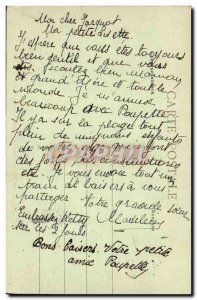 Mon cher Jacquot
Ma petite Lisette
J'espère que vous êtes toujours
bien gentil et que vous
écoutez bien maman
et grand mère et tout le
monde. Je m'amuse
beaucoup avec Poupette
Il y a sur la plage tout
plein de mignons
de vo
des constructions
etc. Je vous envoie tout un
train de baisers à vous
partager. Votre grande sœur
Embrassez Madeleine
sur les 2 joues
Bons baisers Votre petite
amie Poupette
CARTE POSTALE